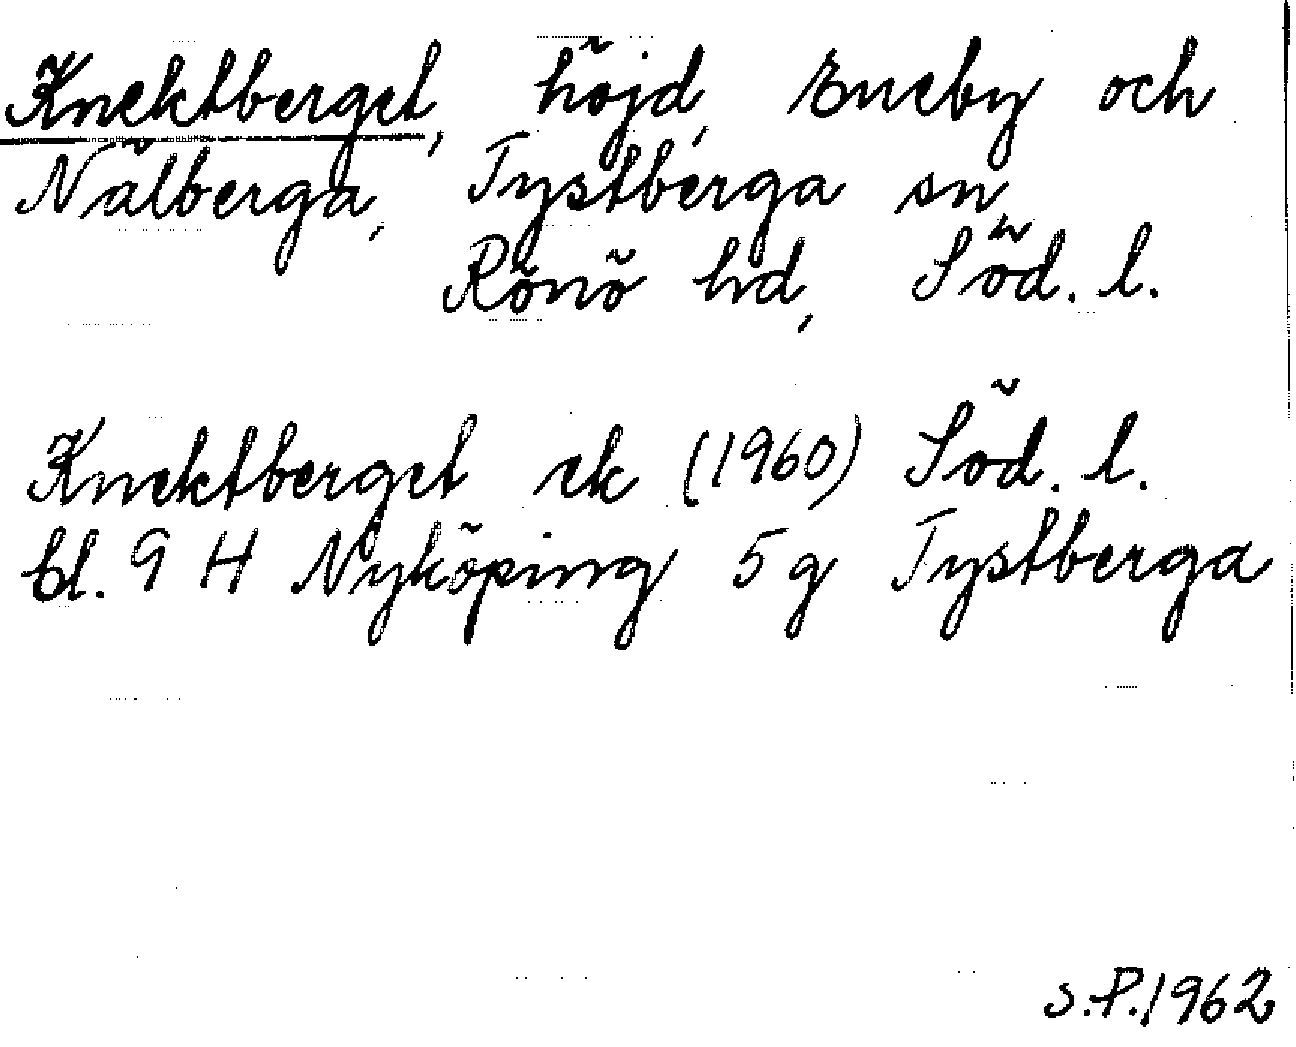 Knektberget, höjd, Eneby och
Nälberga, Tystberga sn,
Rönö hd, Söd. l.
Knektberget ek (1960) Söd. l.
bl. 9 H Nyköping 5 g Tystberga
S.P. 1962